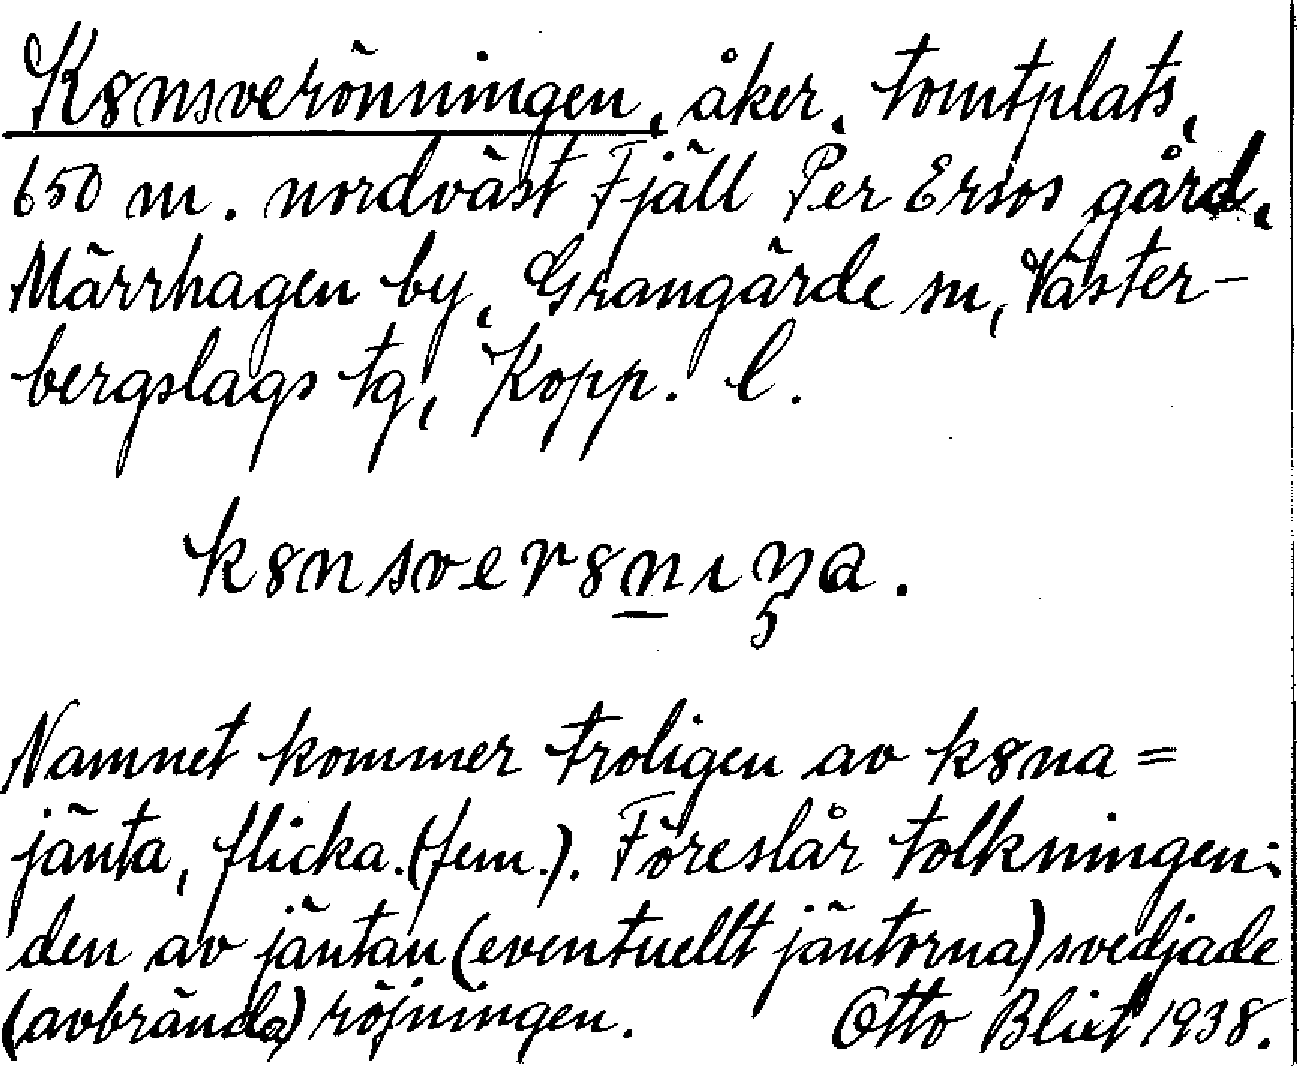 K8nsverönningen, åker, tomtplats,
650 m. nordväst Fjäll Per Ersos gård,
Märrhagen by, Grangärde sn, Väster-
bergslags tg, Kopp. l.
k8nsver8nıŋa.
Namnet kommer troligen av k8na =
jänta, flicka. (fem.). Föreslår tolkningen:
den av jäntan (eventuellt jäntorna) svedjade
(avbrända) röjningen. Otto Blixt 1938.